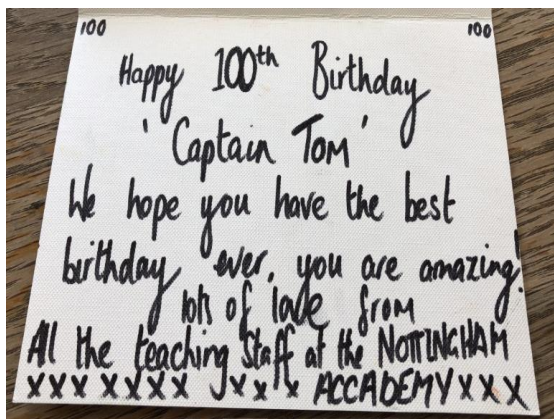 100 100
Happy 100th Birthday
' Captain Tom '
We hope you have the best
birthday ever, you are amazing!
lots of love from
All the teaching staff at the NOTTINGHAM
xxx xxxx xxx ACCADEMY xxx